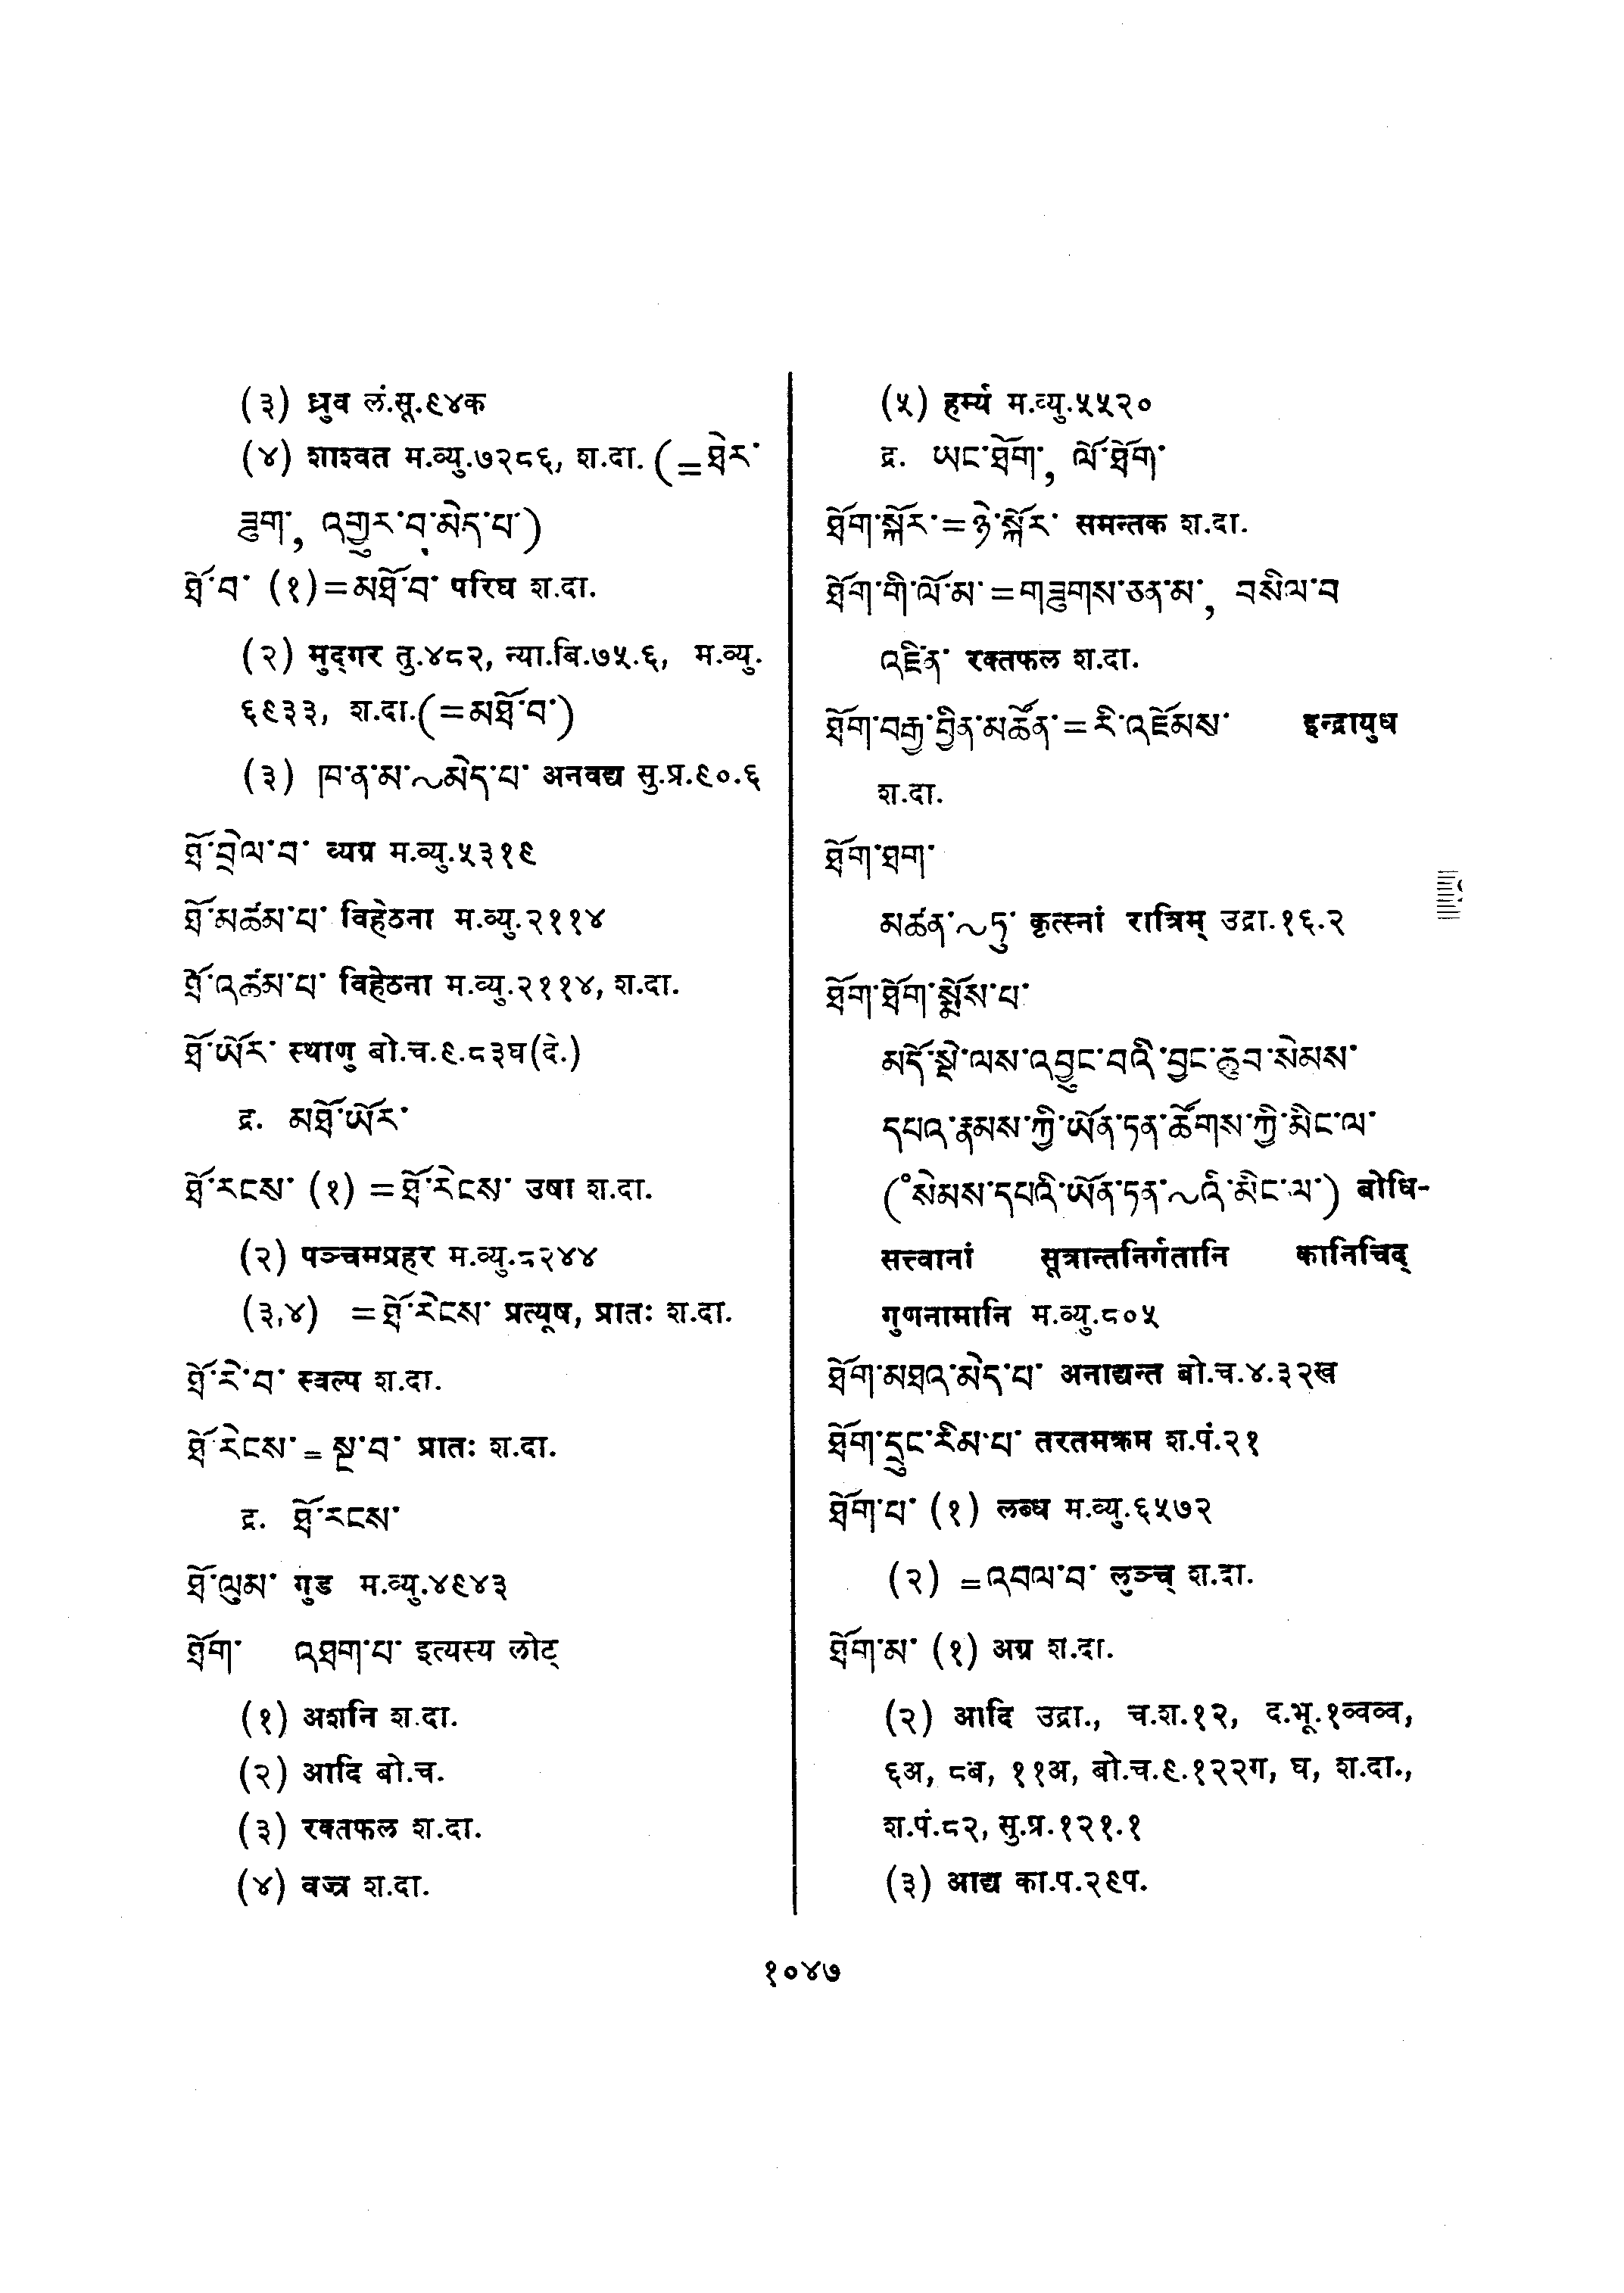 (३) ध्रुव लं.सू.९४क
(४) शाश्वत म.व्यु.७२८६, श.दा. (=ཐེར་
ཟུག་, འགྱུར་བ་མེད་པ་)
ཐོ་བ་ (१)=མཐོ་བ་ परिघ श.दा.
(२) मुद्गर तु.४८२, न्या.बि.७५.६, म.व्यु.
६९३३, श.दा.(=མཐོ་བ་)
(३) ཁ་ན་མ་~མེད་པ་ अनवद्य सु.प्र.९०.६
ཐོ་བྲེལ་བ་ व्यग्र म.व्यु.५३१९
ཐོ་མཚམ་པ་ विहेठना म.व्यु.२११४
ཐོ་འཚམ་པ་ विहेठना म.व्यु.२११४, श.दा.
ཐོ་ཡོར་ स्थाणु बो.च.९.८३घ(दे.)
द्र. མཐོ་ཡོར་
ཐོ་རངས་ (१) =ཐོ་རེངས་ उषा श.दा.
(२) पञ्चमप्रहर म.व्यु.८२४४
(३,४) =ཐོ་རེངས་ प्रत्यूष, प्रातः श.दा.
ཐོ་རེ་བ་ स्वल्प श.दा.
ཐོ་རེངས་ = སྔ་བ་ प्रातः श.दा.
द्र. ཐོ་རངས་
ཐོ་ལུམ་ गुड म.व्यु.४९४३
ཐོག་ འཐག་པ་ इत्यस्य लोट्
(१) अशनि श.दा.
(२) आदि बो.च.
(३) रक्तफल श.दा.
(४) वज्र श.दा.
(५) हर्म्य म.व्यु.५५२०
द्र. ཡང་ཐོག་, ལོ་ཐོག་
ཐོག་སྐོར་=ཉེ་སྐོར་ समन्तक श.दा.
ཐོག་གི་ལོ་མ་=གཟུགས་ཅན་མ་, བསིལ་བ
འཛིན་ रक्तफल श.दा.
ཐོག་བརྒྱ་བྱིན་མཚོན་=རི་འཇོམས་ इन्द्रायुध
श.दा.
ཐོག་ཐག་
མཚན་~ཏུ་ कृत्स्नां रात्रिम् उद्रा.१६.२
ཐོག་ཐོག་སྨོས་པ་
མདོ་སྡེ་ལས་འབྱུང་བའི་བྱང་ཆུབ་སེམས་
དཔའ་རྣམས་ཀྱི་ཡོན་ཏན་ཚོགས་ཀྱི་མིང་ལ་
(°སེམས་དཔའི་ཡོན་ཏན་~འི་མིང་ལ་) बोधि-
सत्त्वानां सूत्रान्तनिर्गतानि कानिचिद्
गुणनामानि म.व्यु.८०५
ཐོག་མཐའ་མེད་པ་ अनाद्यन्त बो.च.४.३२ख
ཐོག་དྲུང་རིམ་པ་ तरतमक्रम श.पं.२१
ཐོག་པ་ (१) लब्ध म.व्यु.६५७२
(२) =འབལ་བ་ लुञ्च् श.दा.
ཐོག་མ་ (१) अग्र श.दा.
(२) आदि उद्रा., च.श.१२, द.भू.१व्वव्व,
६अ, ८ब, ११अ, बो.च.९.१२२ग, घ, श.दा.,
श.पं.८२, सु.प्र.१२१.१
(३) आद्य का.प.२९प.
१०४७